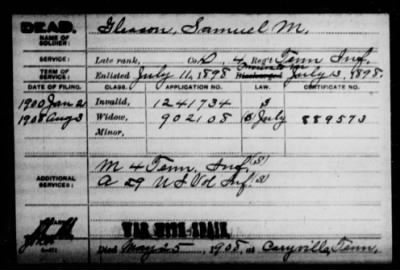 DEAD.
NAME OF SOLDIER: Gleason, Samuel M.
SERVICE: Late rank, Co. D, 4 Reg't Tenn Inf.
TERM OF SERVICE: Enlisted July 11, 1898 Discharged July 13, 1898.
DATE OF FILING. CLASS. APPLICATION NO. LAW. CERTIFICATE NO.
1900 Jan 2 Invalid, 1241734
1908 Aug 3 Widow, 902108 July 559573
Minor,
ADDITIONAL SERVICES: M 4 Tenn. Inf.
A 29 U S Vol Inf
WAR WITH SPAIN
Died May 25, 1908, at Caryville, Tenn.